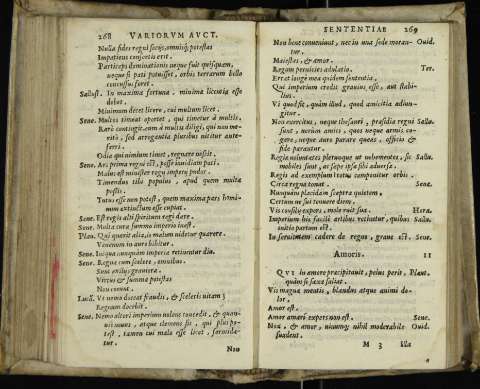 268 VARIORVM AVCT.
Nulla fides regni socijs, omnisq́; potestas
Impatiens consortis erit.
Particeps dominationis neque fuit quisquam,
neque si pati potuisset, orbis terrarum bella
concussus foret.
Sallust. In maxima fortuna, minima licentia esse
debet.
Minimum decet libere, cui multum licet.
Sene. Multos timeat oportet, qui timetur à multis.
Rarò contingit eum à multis diligi, qui non me-
ritò, sed arrogantia pluribus nititur ante-
ferri.
Odia qui nimium timet, regnare nescit.
Sene. Ars prima regni est, posse inuidiam pati.
Malus est miuister regij imperij pudor.
Timendus tibi populus, apud quem multa
possis.
Tutus esse non potest, quem maxima pars homi-
num extinctum esse cupiat.
Sene. Est regis alti spiritum regi dare.
Sene. Multa cura summo imperio inest.
Plau. Qui querit alia, is malum videtur quærere.
Venenum in auro bibitur.
Sene. Iniqua nunquam imperia retinentur diu.
Sene. Regna cum scelere, omnibus
Sunt exilijs grauiora.
Virtus & summa potestas
Non coeunt.
Luca. Vt nemo doceat fraudis, & sceleris vitam;
Regnum docebit.
Sene. Nemo alteri imperium volens concedit, & quan-
uis bonus, atque clemens sit, qui plus po-
test, tamen cui malo esse licet, formida-
tur.
Non
SENTENTIAE 269
Non bene conueniunt, nec in vna sede moran- Ouid.
tur
Maiestas, & amor.
Regum pernicies adulatio. Ter.
Errat longè mea quidem sententia,
Qui imperium credit grauius esse, aut stabi-
lius,
Vi quod fit, quàm illud, quod amicitia adiun-
gitur.
Non exercitus, neque thesauri, præsidia regni Sallu.
sunt, verùm amici: quos neque armis co-
gere, neque auro parare queas, officio &
fide parantur.
Regiæ voluntates plerunque vt vehementes, sic Sallu.
mobiles sunt, ac sæpe ipsæ sibi aduersæ.
Regis ad exemplum totus componitur orbis.
Circa regna tonat. Sene.
Nunquam placidam sceptra quietem,
Certum ue sui tenuere diem.
Vis consilij expers, mole ruit sua. Hora.
Imperium his facilè artibus retinetur, quibus Sallu.
initio partum est.
In seruitutem cadere de regno, graue est. Sene.
Amoris. 11
QVI in amore præcipitauit, peius perit, Plaut.
quàm si saxo saliat.
Vis magna mentis, blandus atque animi ca-
lor,
Amor est.
Amor amari expers non est. Sene.
Nox, & amor, vinumq́; nihil moderabile Ouid.
suadent.
M 3 Illa